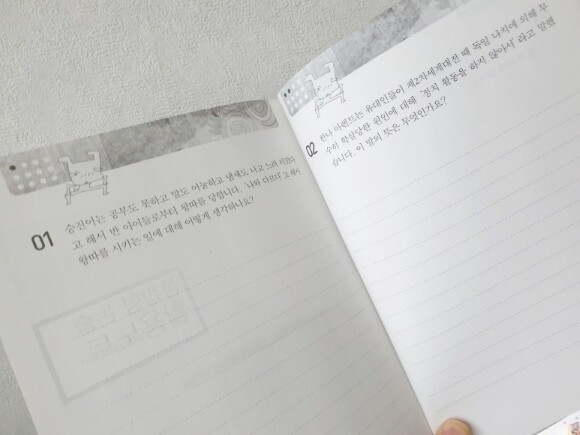 01
승진이는 공부도 못하고 말도 어눌하고 냄새도 나고 느려 터졌다
고 해서 반 아이들로부터 왕따를 당합니다. '나와 다르다'고 해서
왕따를 시키는 일에 대해 어떻게 생각하나요?
02
한나 아렌트는 유대인들이 제2차세계대전 때 독일 나치에 의해 무
수히 학살당한 원인에 대해 '정치 활동을 하지 않아서' 라고 말했
습니다. 이 말의 뜻은 무엇인가요?